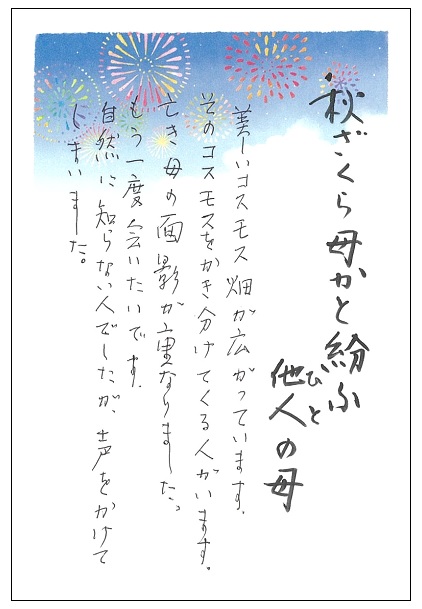 秋ざくら母かと紛ふ
他人の母
ひと
美しいコスモス畑が広がっています。
そのコスモスをかき分けてくる人がいます。
亡き母の面影が重なりました。
もう一度会いたいです。
自然に知らない人でしたが、声をかけて
しまいました。